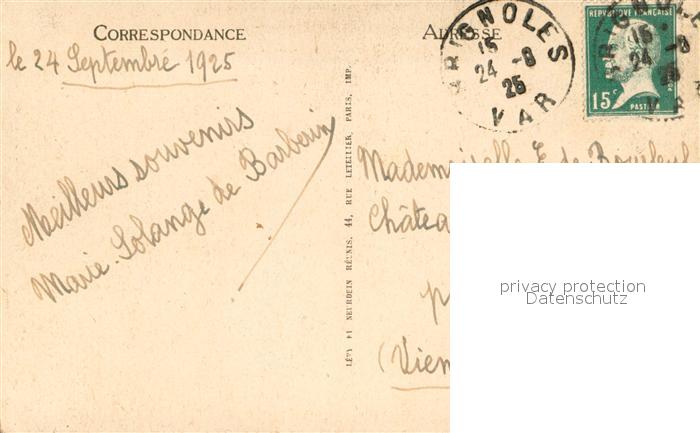 CORRESPONDANCE
ADRESSE
le 24 Septembre 1925
Meilleurs souvenirs
Marie-Solange de Barberin
LÉVY ET NEURDEIN RÉUNIS, 44, RUE LETELLIER, PARIS, IMP.
BRIGNOLES
15
24 -8
25
VAR
RÉPUBLIQUE FRANÇAISE
15c
PASTEUR
15
24 -8
Mademoiselle E. de
Châtea
p
(Vien
privacy protection
Datenschutz